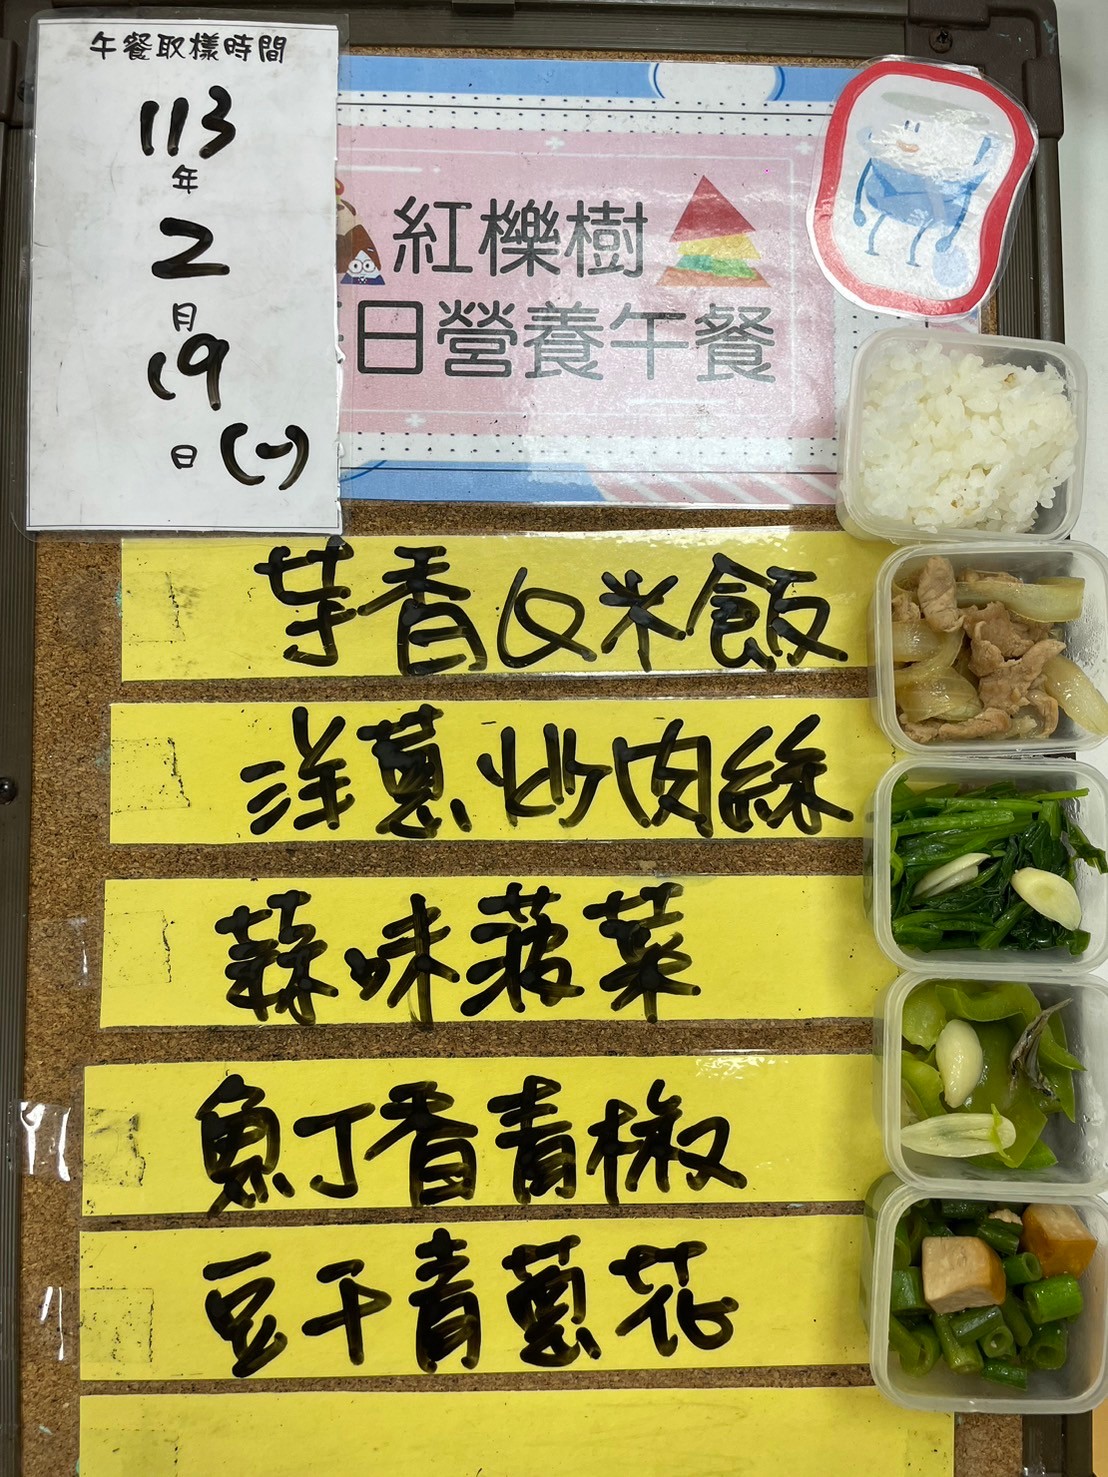 午餐取樣時間
113
年
2
月
19
日 (一)
紅櫟樹
日營養午餐
芋香Q米飯
洋蔥炒肉絲
蒜味菠菜
魚丁香青椒
豆干青蔥花